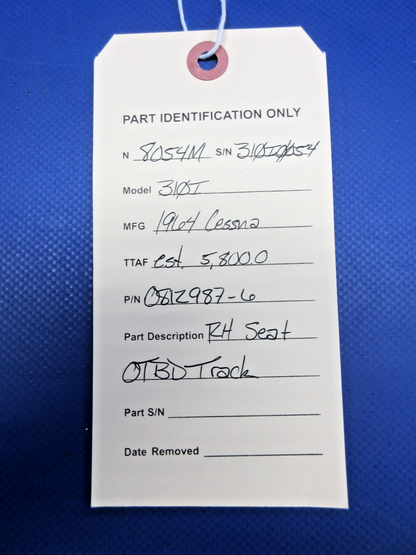 PART IDENTIFICATION ONLY
N 8054M S/N 310I0054
Model 310I
MFG 1964 Cessna
TTAF est. 5,800.0
P/N 0812987-6
Part Description RH Seat
OTBD Track
Part S/N
Date Removed